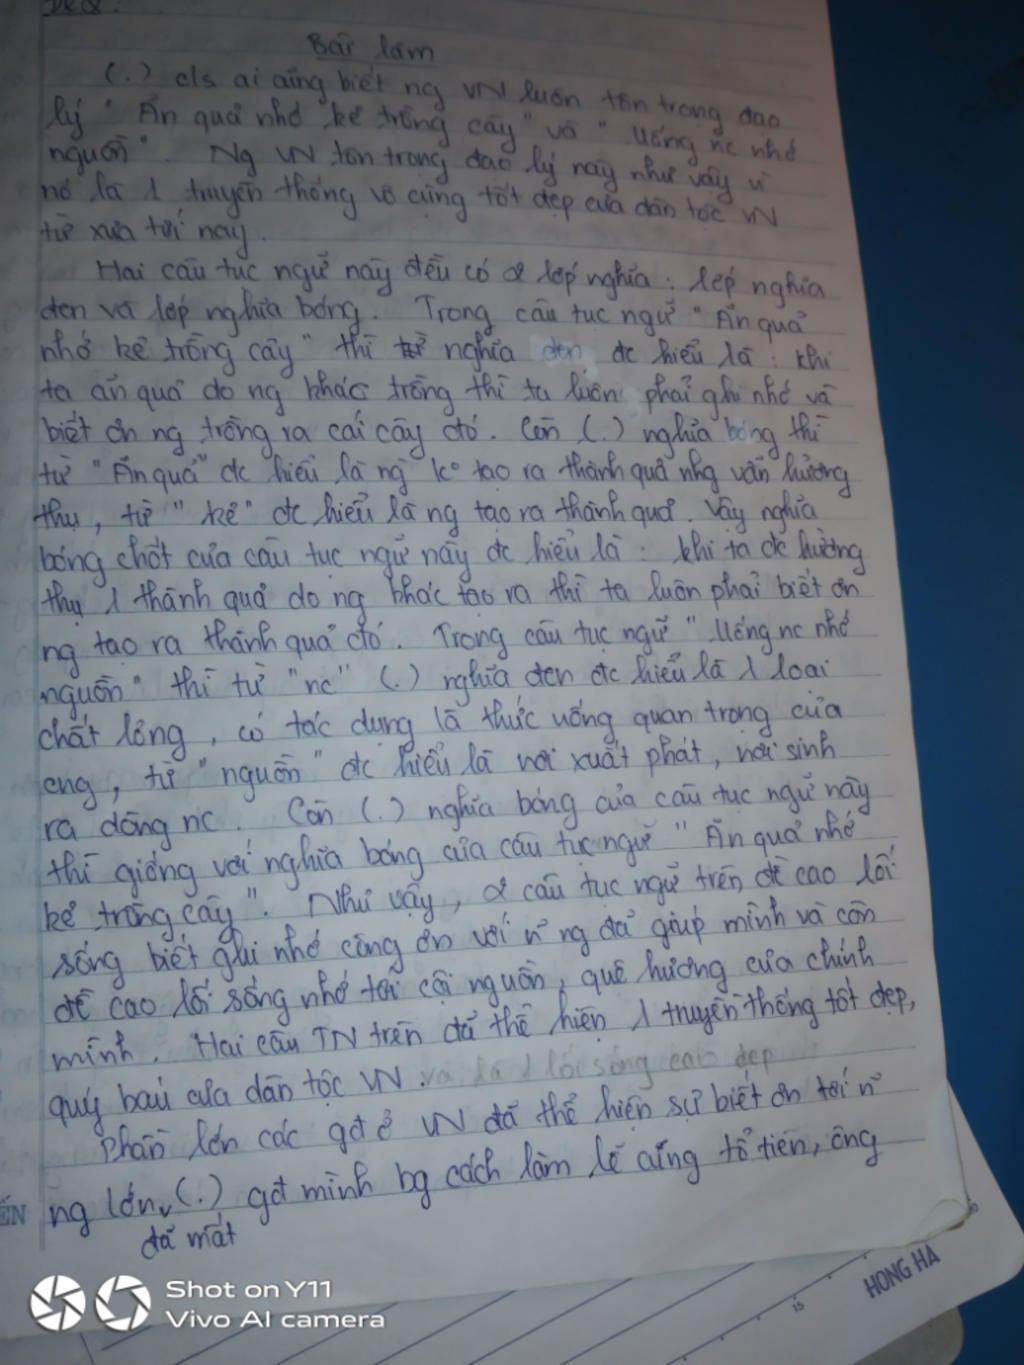 Bài làm
(.) c/s ai cũng biết ng VN luôn tôn trọng đạo
lý " Ăn quả nhớ kẻ trồng cây " và " Uống nc nhớ
nguồn ". Ng VN tôn trọng đạo lý này như vậy vì
nó là 1 truyền thống vô cùng tốt đẹp của dân tộc VN
từ xưa tới nay.
Hai câu tục ngữ này đều có 2 lớp nghĩa : lớp nghĩa
đen và lớp nghĩa bóng. Trong câu tục ngữ " Ăn quả
nhớ kẻ trồng cây " thì nghĩa đen đc hiểu là : khi
ta ăn quả do ng khác trồng thì ta luôn phải ghi nhớ và
biết ơn ng trồng ra cái cây đó. Còn (.) nghĩa bóng thì
từ " Ăn quả " đc hiểu là ng ko tạo ra thành quả nhg vẫn hưởng
thụ, từ " kẻ " đc hiểu là ng tạo ra thành quả. Vậy nghĩa
bóng chốt của câu tục ngữ này đc hiểu là : khi ta đc hưởng
thụ 1 thành quả do ng khác tạo ra thì ta luôn phải biết ơn
ng tạo ra thành quả đó. Trong câu tục ngữ " Uống nc nhớ
nguồn " thì từ " nc " (.) nghĩa đen đc hiểu là 1 loại
chất lỏng, có tác dụng là thức uống quan trọng của
cng, từ " nguồn " đc hiểu là nơi xuất phát, nơi sinh
ra dòng nc. Còn (.) nghĩa bóng của câu tục ngữ này
thì giống với nghĩa bóng của câu tục ngữ " Ăn quả nhớ
kẻ trồng cây ". Như vậy, 2 câu tục ngữ trên đề cao lối
sống biết ghi nhớ công ơn với n~ ng đã giúp mình và còn
đề cao lối sống nhớ tới cội nguồn, quê hương của chính
mình. Hai câu TN trên đã thể hiện 1 truyền thống tốt đẹp,
quý báu của dân tộc VN và là 1 lối sống cao đẹp
Phần lớn các gđ ở VN đã thể hiện sự biết ơn tới n~
ng lớn (.) gđ mình bg cách làm lễ cúng tổ tiên, ông
đã mất
HONG HA
15
Shot on Y11
Vivo AI camera